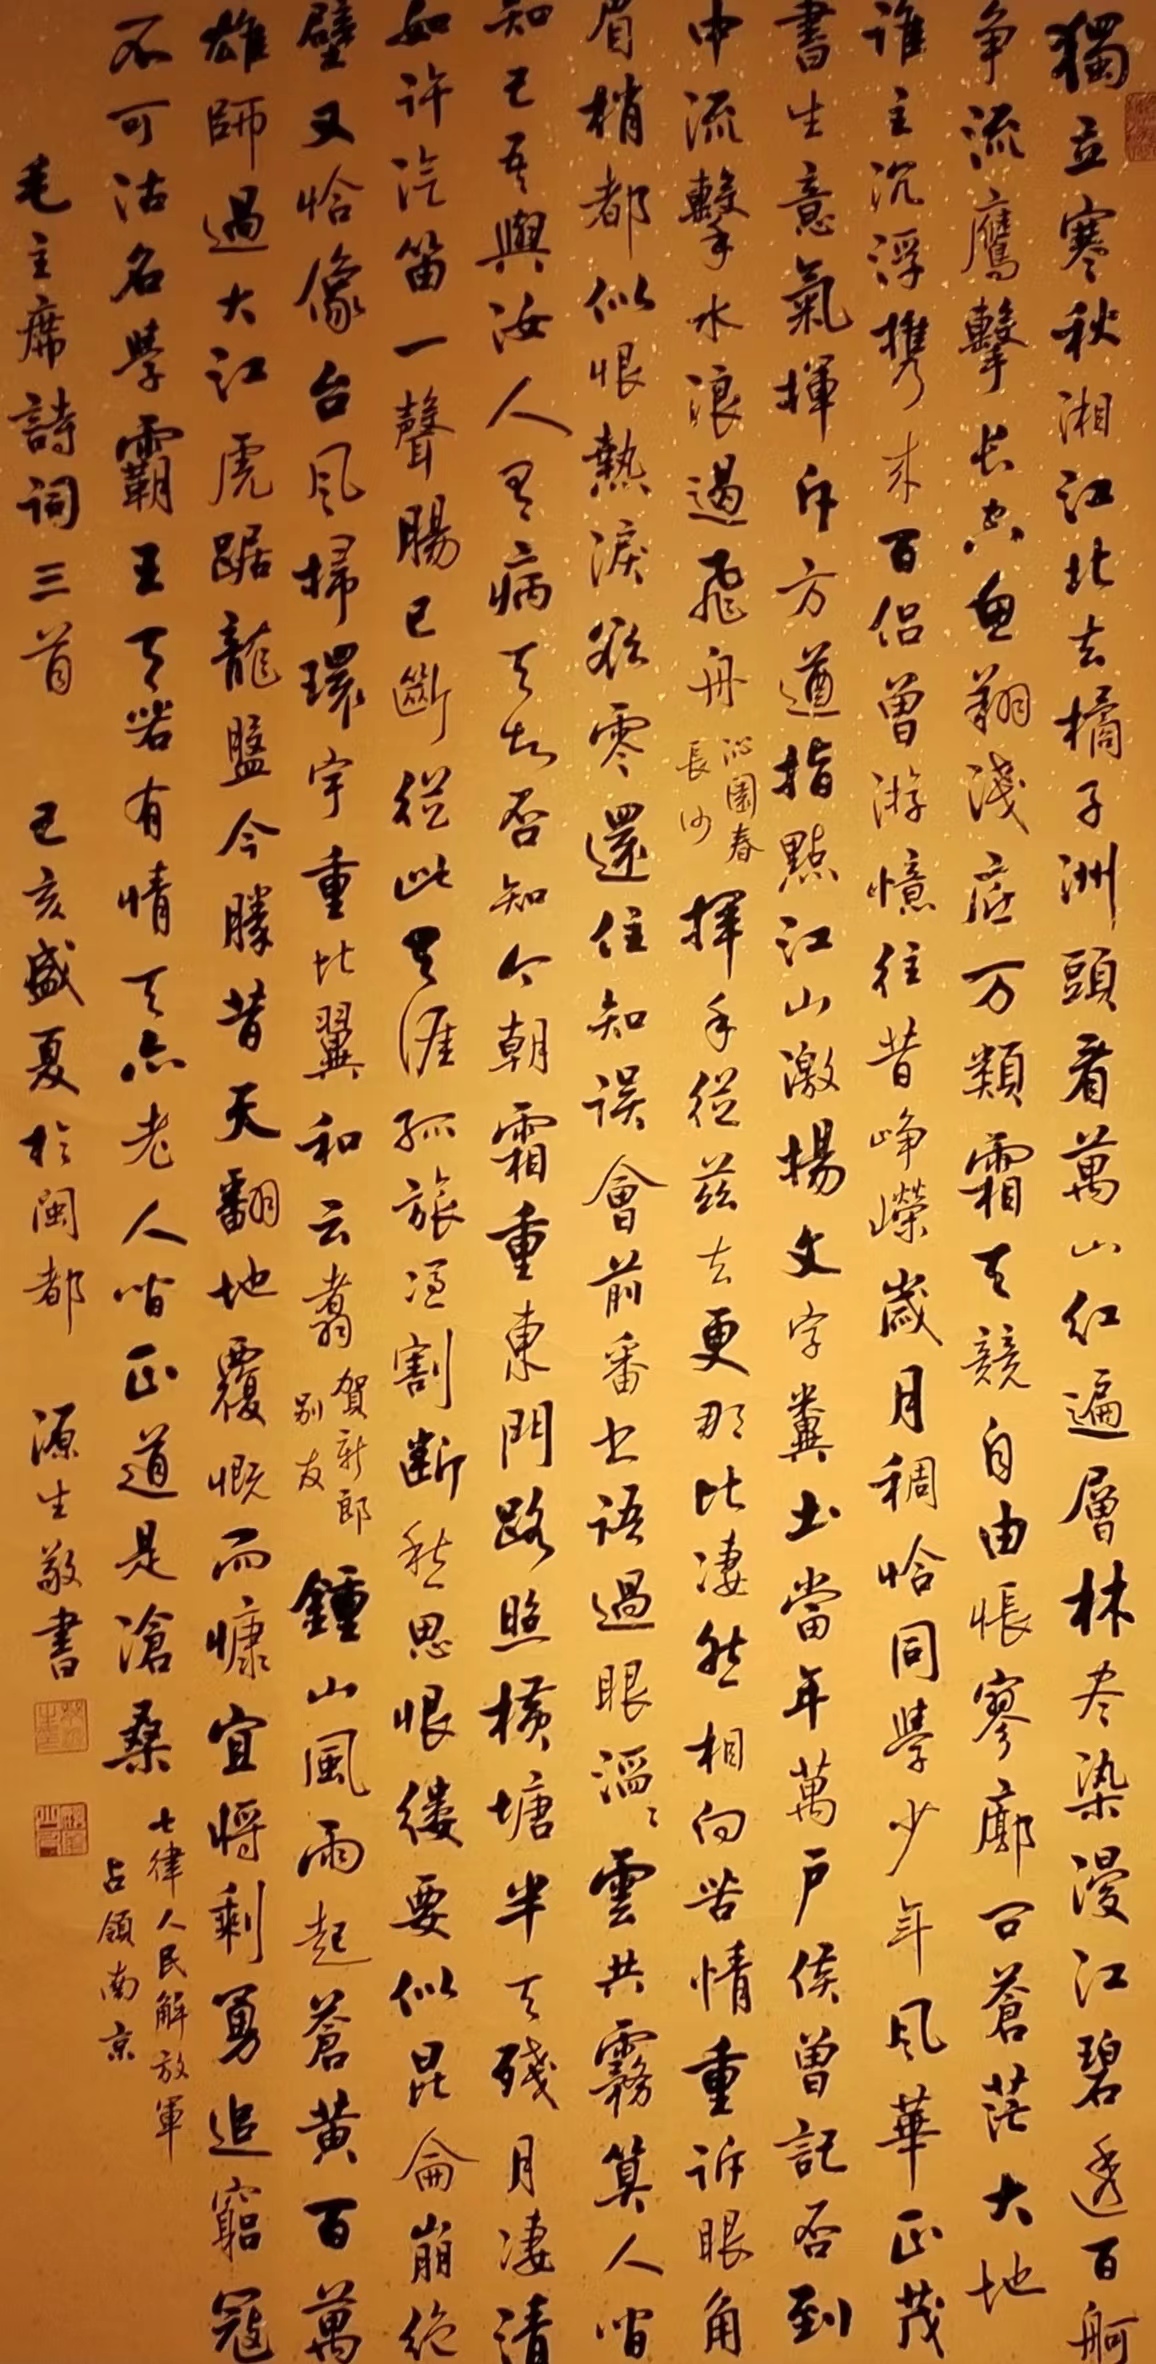 獨立寒秋湘江北去橘子洲頭看萬山红遍層林尽染漫江碧透百舸
争流鷹擊长空魚翔淺底万類霜天競自由悵寥廓问蒼茫大地
谁主沉浮携来百侣曾游憶往昔峥嶸崴月稠恰同學少年风華正茂
書生意氣揮斥方遒指點江山激揚文字糞土當年萬户侯曾記否到
中流擊水浪遏飛舟
沁園春
長沙
揮手從兹去更那比凄然相向苦情重诉眼角
眉梢都似恨熱淚欲零還住知误會前番书语過眼滔〻雲共霧算人间
知己吾與汝人有病天知否知今朝霜重東門路照横塘半天残月凄清
如许汽笛一聲腸已斷從此天涯孤旅凭割断愁思恨缕要似昆侖崩绝
壁又恰像台风掃環宇重比翼和云翥
賀新郎
别友
鍾山風雨起蒼黄百萬
雄師過大江虎踞龍盤今勝昔天翻地覆慨而慷宜将剩勇追窮寇
不可沽名學霸王天若有情天亦老人间正道是滄桑
七律人民解放軍
占領南京
毛主席詩词三首 己亥盛夏於闽都 源生敬書